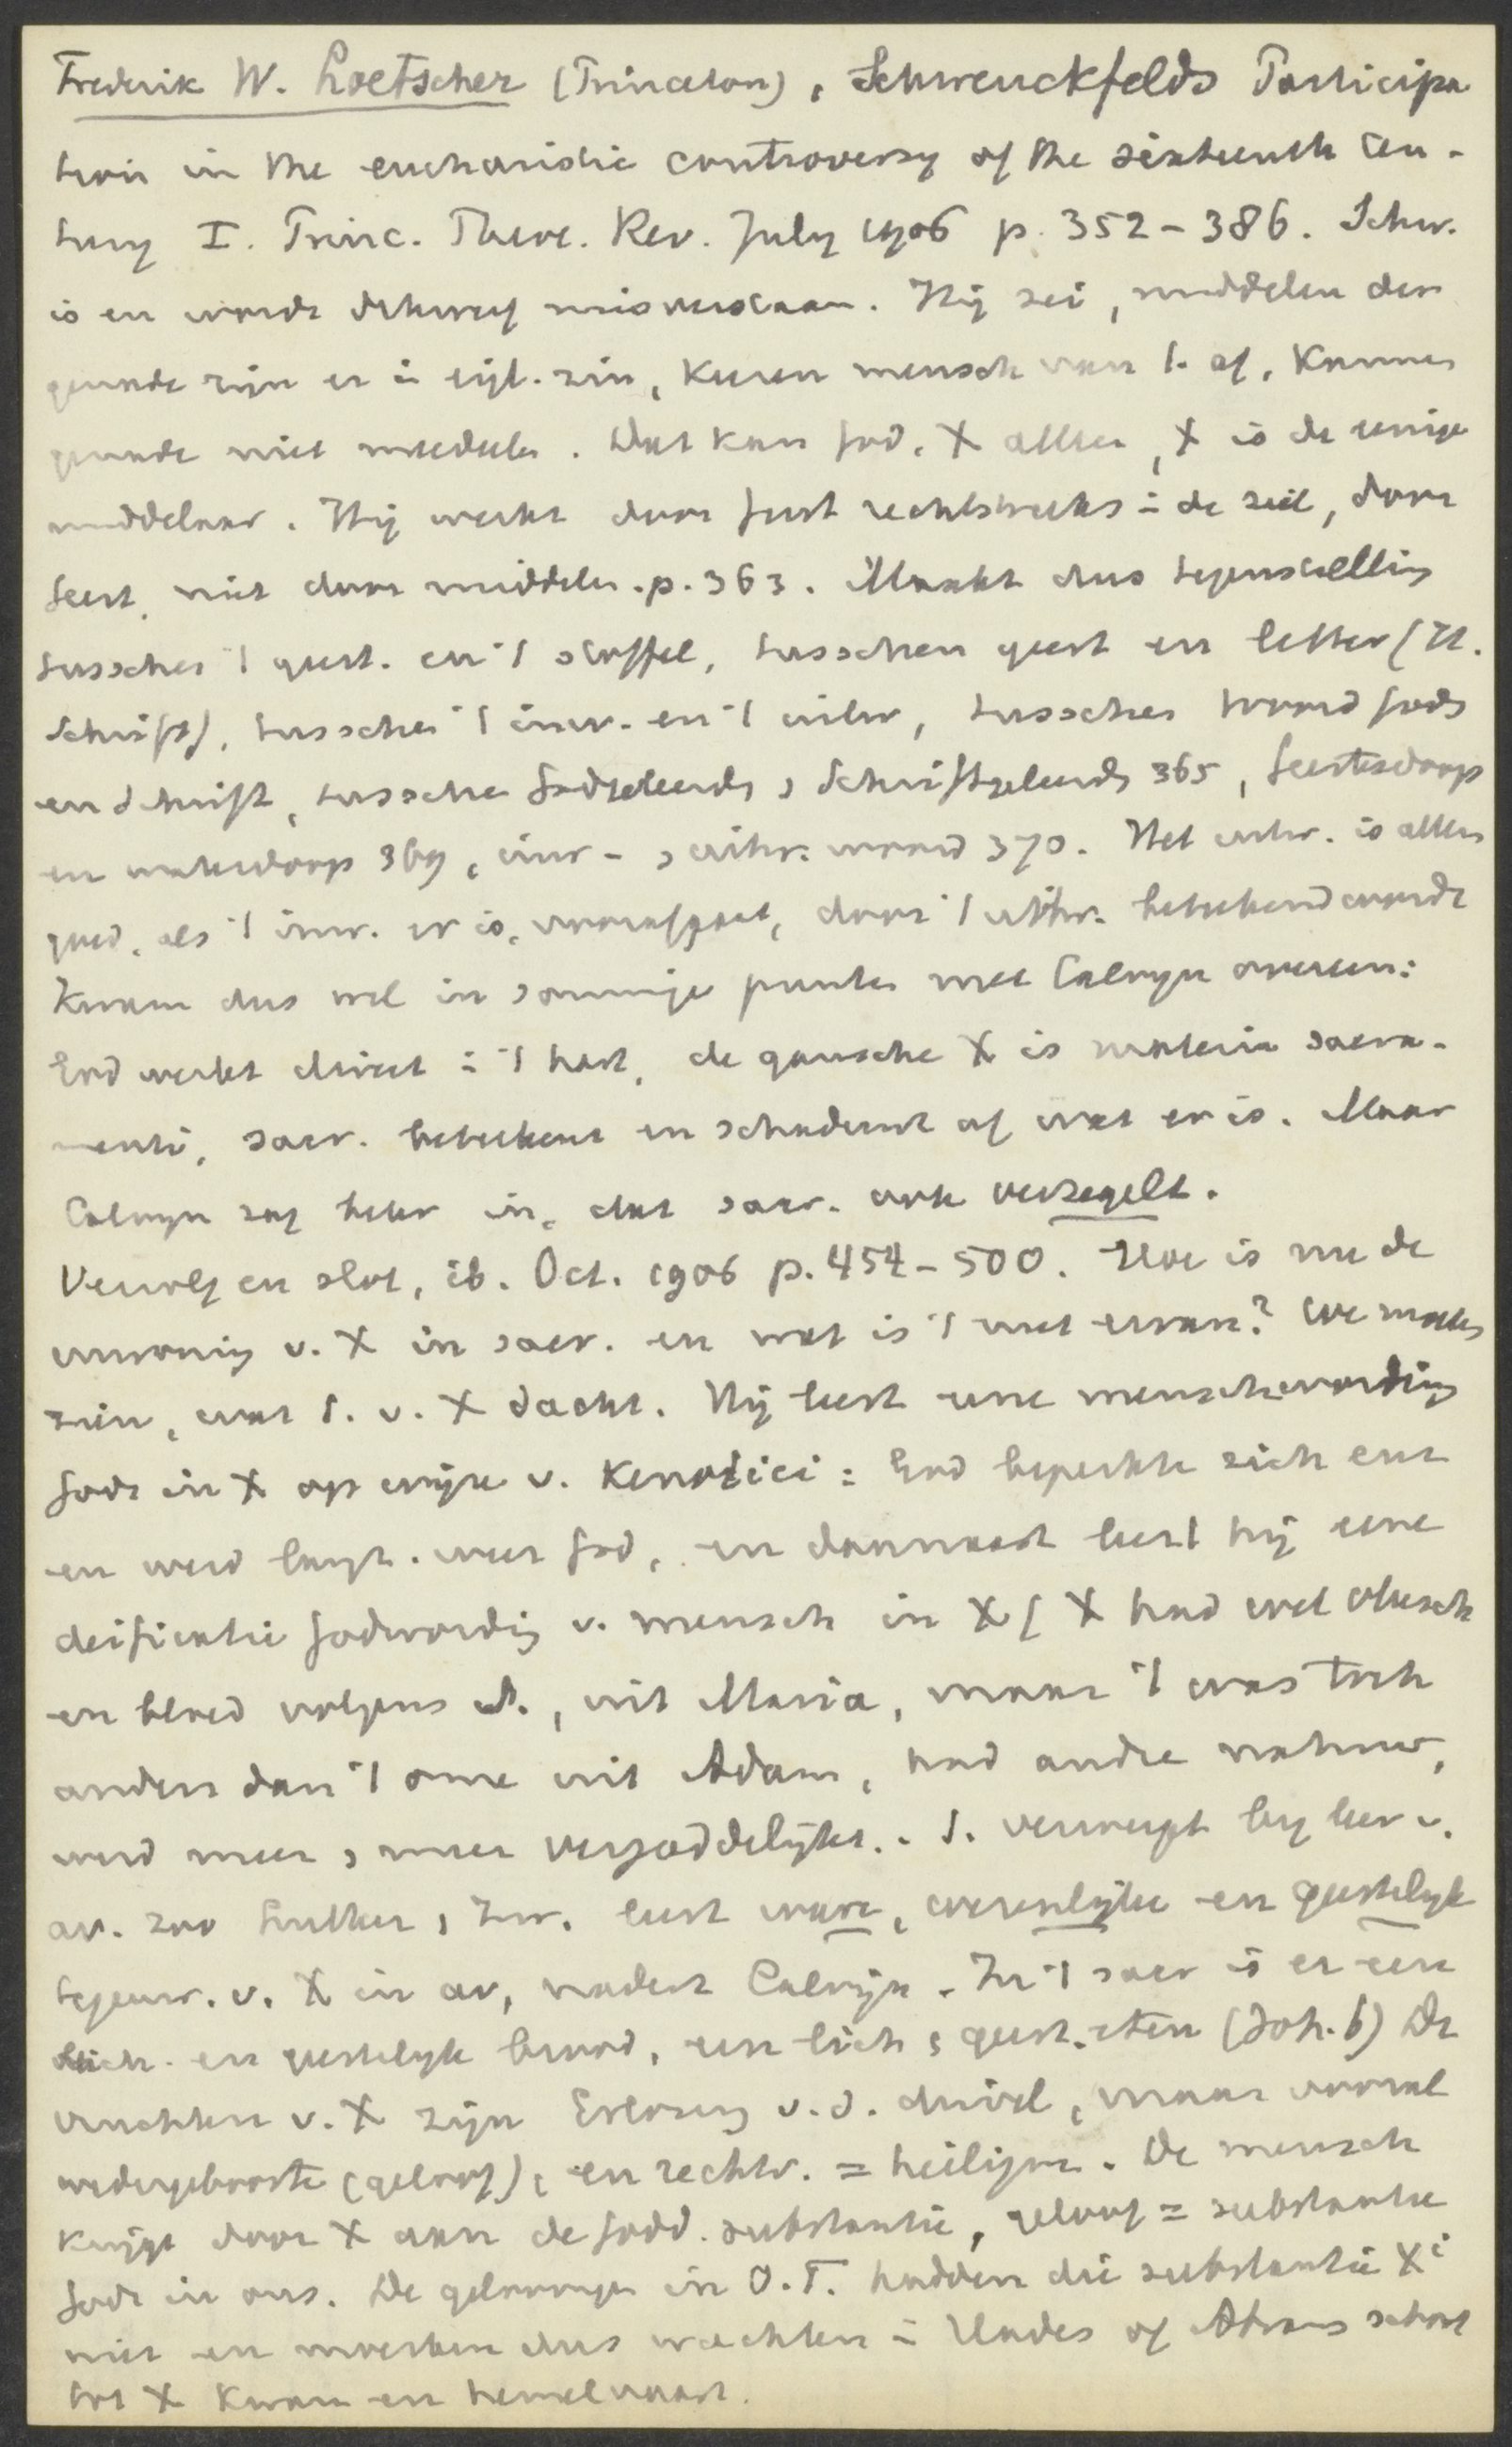 Frederik W. Loetscher (Princeton), Schwenckfelds Participa
tion in the eucharistic controversy of the sixteenth Cen-
tury I. Princ. Theol. Rev. July 1906 p. 352-386. Schw.
is en wordt dikwerf misverstaan. Hij zei, middelen der
genade zijn er in eigl. zin, keren mensch van 1. af, kunnen
genade niet mededeelen. Dat kan God, X alleen, X is de eenige
middelaar. Hij werkt door Geest rechtstreeks in de ziel, door
Geest, niet door middelen. p. 363. Maakt dus tegenstelling
tusschen 't geest. en 't stoffel, tusschen geest en letter (H.
Schrift), tusschen 't inw. en 't uitw, tusschen woord Gods
en Schrift, tusschen Godgeleerds, Schriftgeleerds 365, Geestesdoop
en waterdoop 369, inw-, uitw. woord 370. Het uitw. is alleen
goed, als 't inw. er is, voorafgaat, door 't uitw. beteekend wordt
Kwam dus wel in sommige punten met Calvyn overeen:
God werkt direct in 't hart, de gansche X is materia sacra-
menti, sacr. beteekent en schaduwt af wat er is. Maar
Calvyn zag beter in, dat sacr. ook verzegelt.
Vervolg en slot, ib. Oct. 1906 p. 454-500. Hoe is nu de
inwoning v. X in sacr. en wat is 't nut ervan? We moeten
zien, wat S. v. X dacht. Hij leert eene menschwording
Gods in X op wijze v. Kenotici: God beperkte zich eerst
en werd langz. weer God, en daarnaast leert hij eene
deificatie godwording v. mensch in X (X had wel vleesch
en bloed volgens S., uit Maria, maar 't was toch
anders dan 't onze uit Adam, had andre natuur,
werd meer, meer vergoddelijkt. - S. verwerpt by leer v.
av. zoo Luther, Zw. leert ware, wezenlijke en geestelyk
tegenw. v. X in av, nadert Calvijn. In 't sacr is er een
lich. en geestelyk brood, een lich, geest. eten (Joh. 6) De
vruchten v. X zijn Erlosung v. d. duivel, maar vooral
wedergeboorte (geloof), en rechtv. = heiligm. De mensch
krijgt door X aan de godd. substantie, geloof = substantie
Gods in ons. De geloovigen in O.T. hadden die substantie Xi
niet en moesten dus wachten in Hades of Abrams schoot
tot X kwam en hemelvaart.